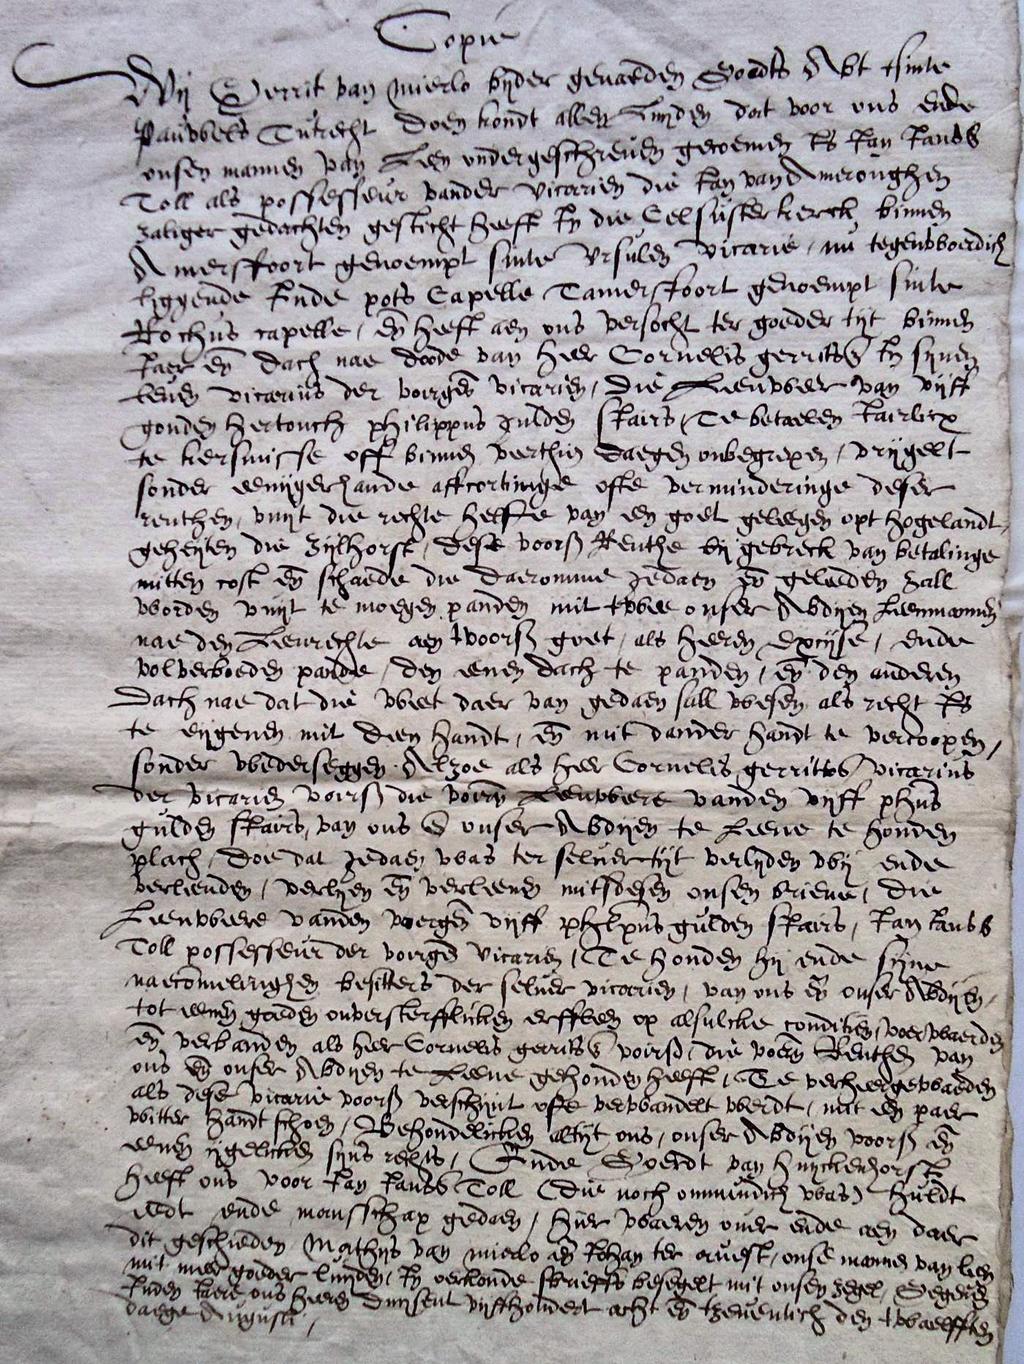 Copie
Wij Gerrit van Mierlo bijder genaeden Goedts Abt tsinte
Pauwels Tutrecht doen kondt allen Luijden dat voor ons ende
onsen mannen van Leen ondergeschreven gecoemen is Jan Janss
Toll als possesseur vander vicarien die Jan van Ameronghen
zaliger gedachten gesticht heeft in die Celsusterkerck binnen
Amersffoort genoempt sinte Ursulen vicarie, nu tegenwoerdich
liggende inde pots Capelle Tamersfoort genoempt sinte
Rochus capelle, en heeft aen ons versocht ter goeder tijt binnen
Jaer en dach nae doode van heer Cornelis gerritss in sijnen
leven vicarius der voirgen vicarien, die Leenweer van vijff
gouden hertouch philippus gulden sJairs, Te betaelen Jairlicx
te kersmisse off binnen veerthien daegen onbegrepen, vrijgelt
sonder eenijgerhande affcortinge ofte verminderinge deser
renthen, vuijt die rechte helffte van een goet geleegen opt hogelandt
geheijten die Zijlhorst, dese voors Renthe bij gebreck van betalinge
mitten cost en schaede die daeromme gedaen en geleeden zall
worden vuijt te moegen panden mit twee onser Abdijen leenmannen
nae den Leenrechte aen tvoors goet, als heeren excijse, ende
volverboeden pande, den eenen dach te panden, en den anderen
Dach nae dat die weet daer van gedaen sall wesen als recht is
te eijgenen mit deen handt, en mit dander handt te vercoopen,
sonder wederseggen Alzoe als heer Cornelis gerritss vicarius
der vicarien voirs die voirn Leenweere vanden vijff phus
gulden sJairs, van ons en onser Abdijen te Leene te houden
plach, Doe dat gedaen was ter selver tijt verlijden wij ende
verleenden, verlijen en verleenen mitsdesen onsen brieve, die
Leenweere vanden voergen vijff philpus gulden sJairs, Jan Janss
Toll possesseur der voirgen vicarien, Te houden hij ende sijne
naecomelinghen besitters der selver vicarien, van ons en onser Abdijen,
tot eenen goeden onversterfflicken erffleen op alsulcke conditien, voerwaerden
en verbanden als heer Cornelis gerritss voirs, die voern Renthen van
ons en onser Abdijen te Leene gehouden heeft, Te verheergewaeden
als dese vicarie voors verschijnt ofte verwandelt werdt, mit een paer
witter handtschoen, Behoudelicken altijt ons, onser Abdijen voors en
eenen ijgelicken sijns rechts, Ende Goerdt van huijckenhorst
heeft ons voor Jan Janss Toll (die noch onmundich was) huldt
eedt ende manschap gedaen, hier waeren over ende aen daer
dit geschieden Mathijs van mierlo en Johan ter awest, onse mannen van leen
mit meer goeder luijden, In oerkonde sbrieffs besegelt mit onsen zegel, Gegeven
Inden Jaere ons heeren duijsent vijffhondert acht en tzeventich den twaelfften
daege Augusti,